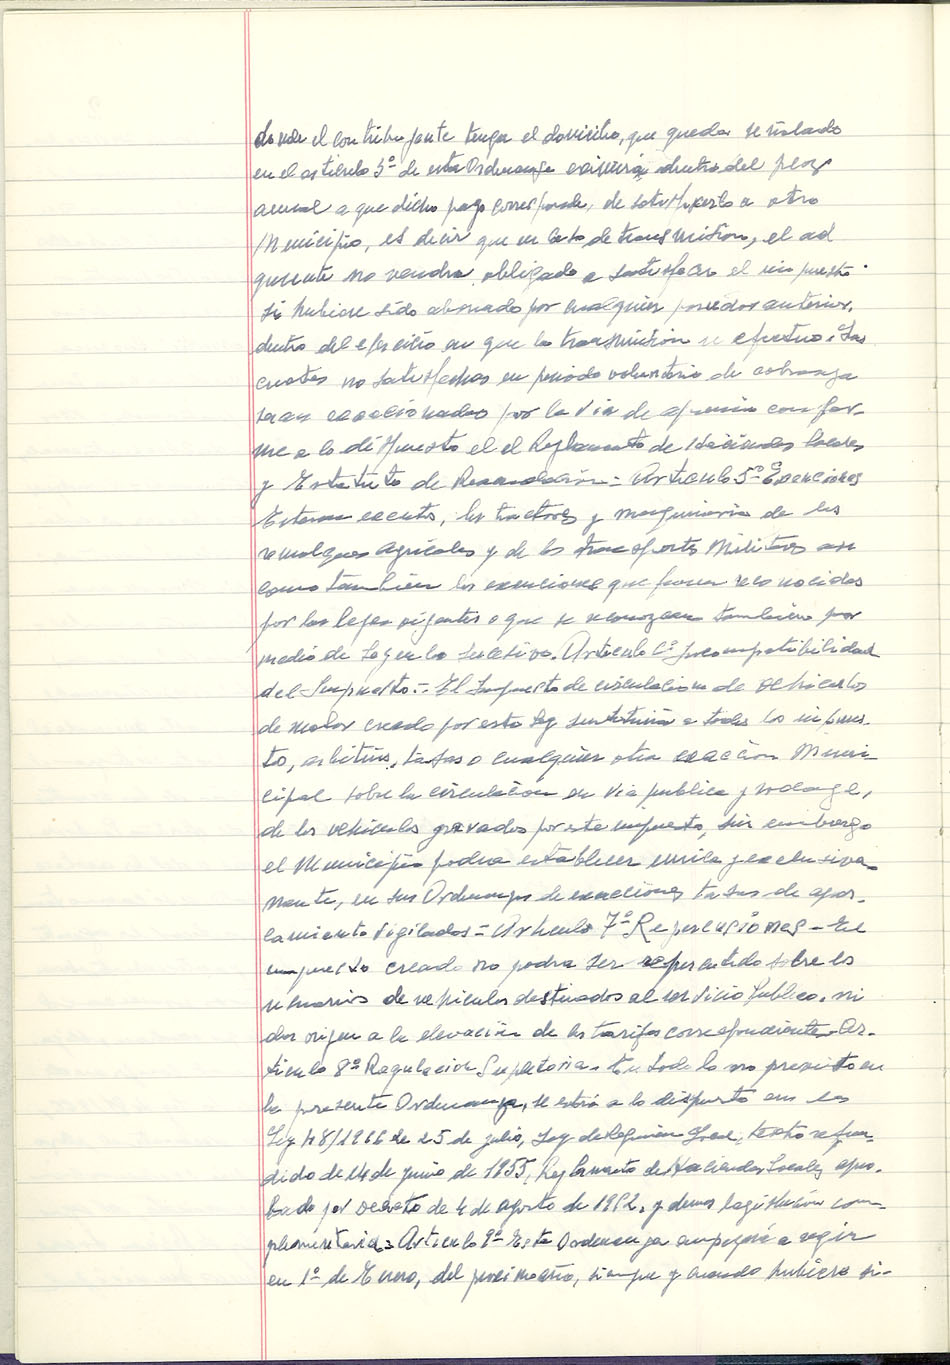 donde el contribuyente tenga el domicilio, que queda señalado
en el artículo 3º de esta Ordenanza eximirá dentro del plazo
anual a que dicho pago corresponde, de satisfacerlo a otro
Municipio, es decir que en caso de transmision, el ad
quirente no vendra obligado a satisfacer el impuesto
si hubiese sido abonado por cualquier poseedor anterior,
dentro del ejercicio en que la transmision se efectue. Las
cuotas no satisfechas en periodo voluntario de cobranza
seran exaccionadas por la via de apremio confor-
me a lo dispuesto el el Reglamento de Haciendas locales
y Estatuto de Recaudación = Articulo 5º Exenciones
Estaran exentos, los tractores y maquinaria de los
remolques agricolas y de los transportes Militares asi
como tambien las exenciones que fueran reconocidas
por las leyes vigentes o que se reconozcan tambien por
medio de Ley en lo sucesivo. Articulo 6º Incompatibilidad
del Impuesto.- El Impuesto de circulacion de vehiculos
de motor creado por esta Ley sustituirá a todos los impues-
to, arbitrios, tasas o cualquier otra exacción Muni-
cipal sobre la circulación en via publica y rodaje,
de los vehículos gravados por este impuesto, sin embargo
el Municipio podra establecer unica y exclusiva
mente, en sus Ordenanzas de exacciones tasas de apar-
camiento vigilados = Articulo 7º Repercusiones - El
impuesto creado no podra ser repercutido sobre los
usuarios de vehiculos destinados al servicio publico, ni
dar origen a la elevación de las tarifas correspondientes. Ar-
ticulo 8º Regulación Supletoria. En todo lo no previsto en
la presente Ordenanza, se estará a lo dispuesto en la
Ley 48/1966 de 25 de julio, Ley de Régimen Local, texto refun-
dido de 24 de junio de 1955, Reglamento de Haciendas Locales apro-
bado por Decreto de 4 de agosto de 1952, y demas legislación com-
plementaria = Articulo 9º Esta Ordenanza empezará a regir
en 1º de Enero, del proximo año, siempre y cuando hubiera si-